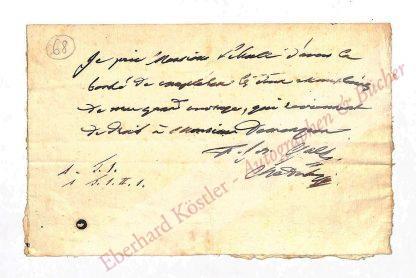 68
Je prie Monsieur Schoell d'avoir la
bonté de compléter les deux exemplaires
de mon grand ouvrage, qui reviennent
de droit à Monsieur
F. Jos. Gall
1
1
Eberhard Köstler - Autographen & Bücher